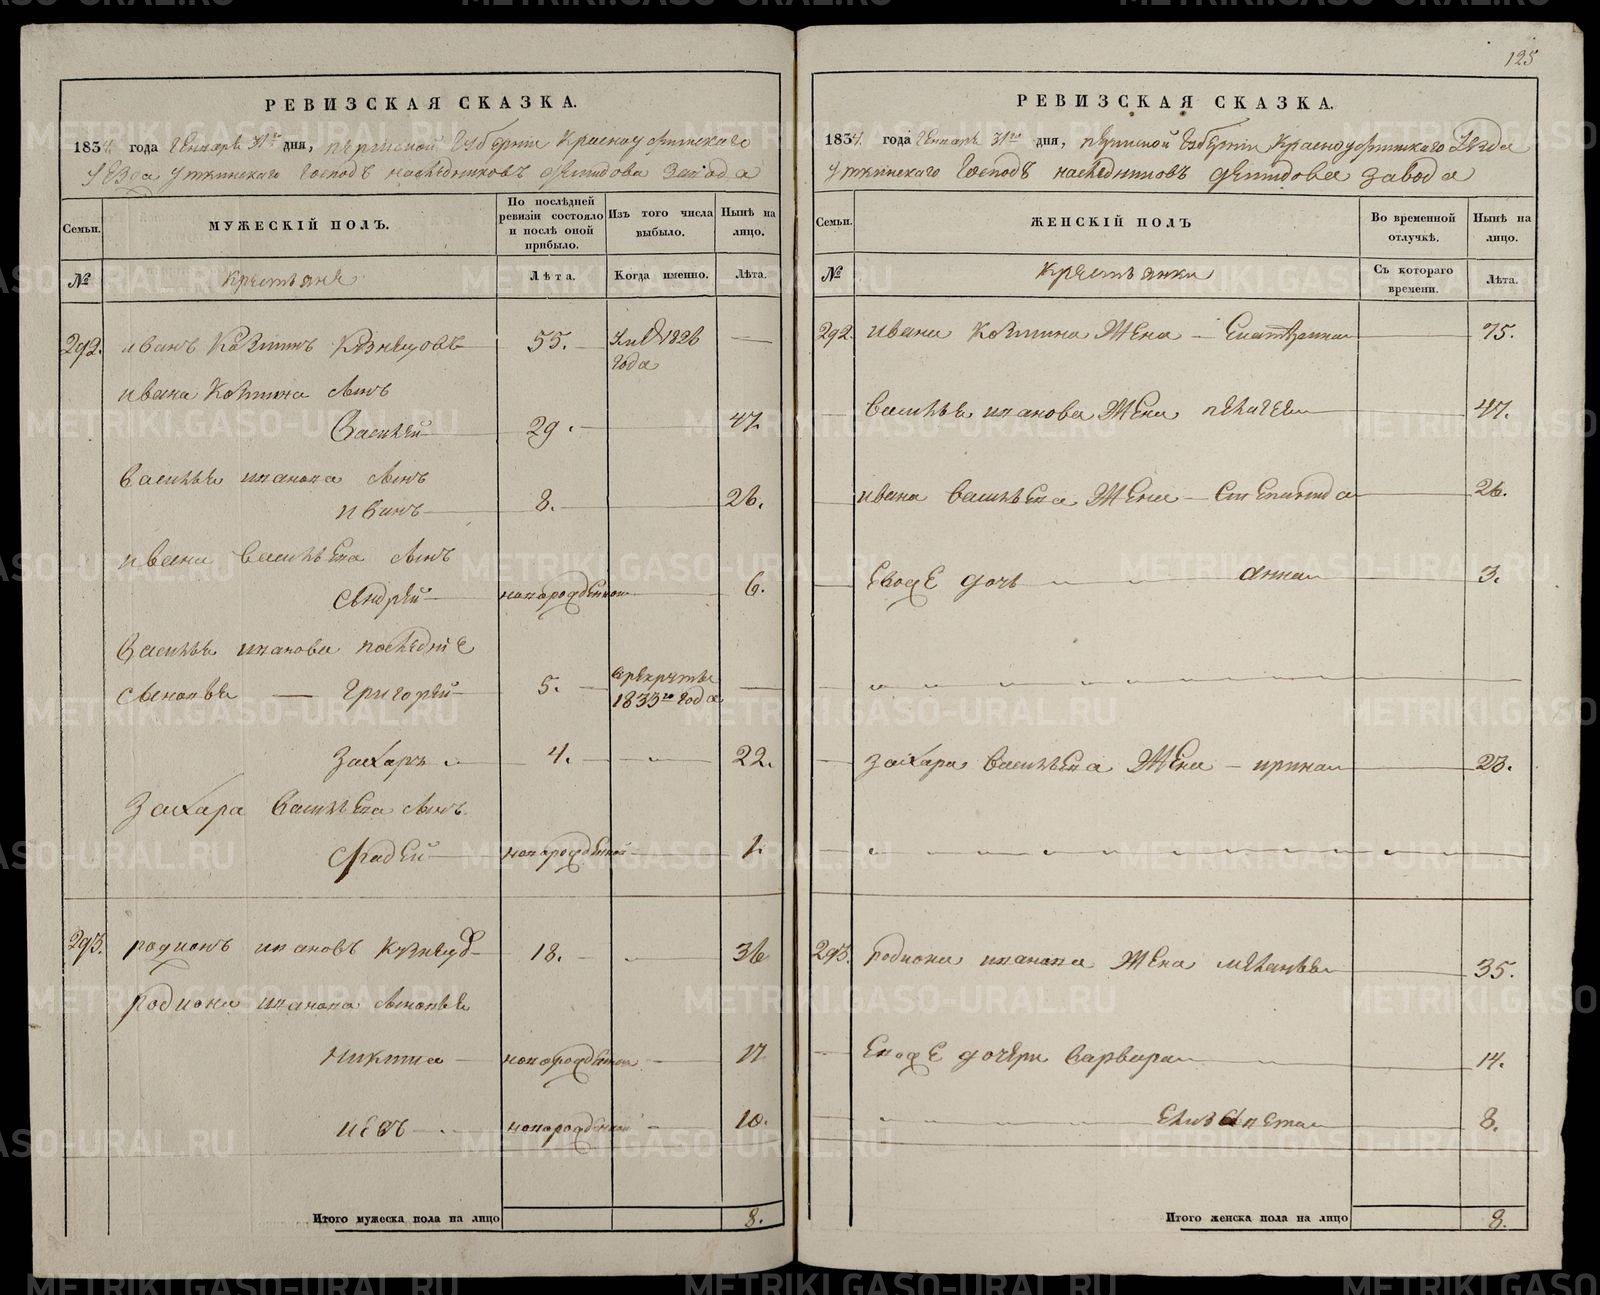 125
РЕВИЗСКАЯ СКАЗКА.
1834 года Генваря 31го дня, Пермской Губернии Красноуфимскаго
уезда Уткинскаго Господъ наследниковъ Демидова завода
Семьи.
МУЖЕСКІЙ ПОЛЪ.
По послѣдней ревизіи состояло и послѣ оной прибыло.
Изъ того числа выбыло.
Нынѣ на лицо.
№
Крестьяне
Лѣта.
Когда именно.
Лѣта.
292. Иванъ Козминъ Кузнецовъ 55. 1826 года —
Ивана Козмина сынъ
Василей 29. 47
Василья Иванова сынъ
Иванъ 8. 26.
Ивана Васильева сынъ
Андрей новорожденной 6.
Василья Иванова последние
сыновья — Григорей 5. в рекруты 1833го года —
Захаръ 4. 22.
Захара Васильева сынъ
Фадей новорожденной 1.
293. Родионъ Ивановъ Кузнецов 18. 36
Родиона Иванова сыновья
Никита новорожденной 17
Иевъ новорожденной 10.
Итого мужеска пола на лицо 8.
РЕВИЗСКАЯ СКАЗКА.
1834. года Генваря 31го дня, Пермской Губернии Красноуфимскаго уезда
Уткинскаго Господъ наследниковъ Демидова завода
Семьи.
ЖЕНСКІЙ ПОЛЪ
Во временной отлучкѣ.
Нынѣ на лицо.
№
Крестьянки
Съ котораго времени.
Лѣта.
292. Ивана Козмина жена — Екатерина 75.
Василья Иванова жена Пелагея 47.
Ивана Васильева жена — Степанида 26.
Евоже дочь Анна 3.
Захара Васильева жена — Ирина 23.
293. Родиона Иванова жена Меланья 35.
Евоже дочери Варвара 14.
Елизавета 8.
Итого женска пола на лицо 8.
METRIKI.GASO-URAL.RU